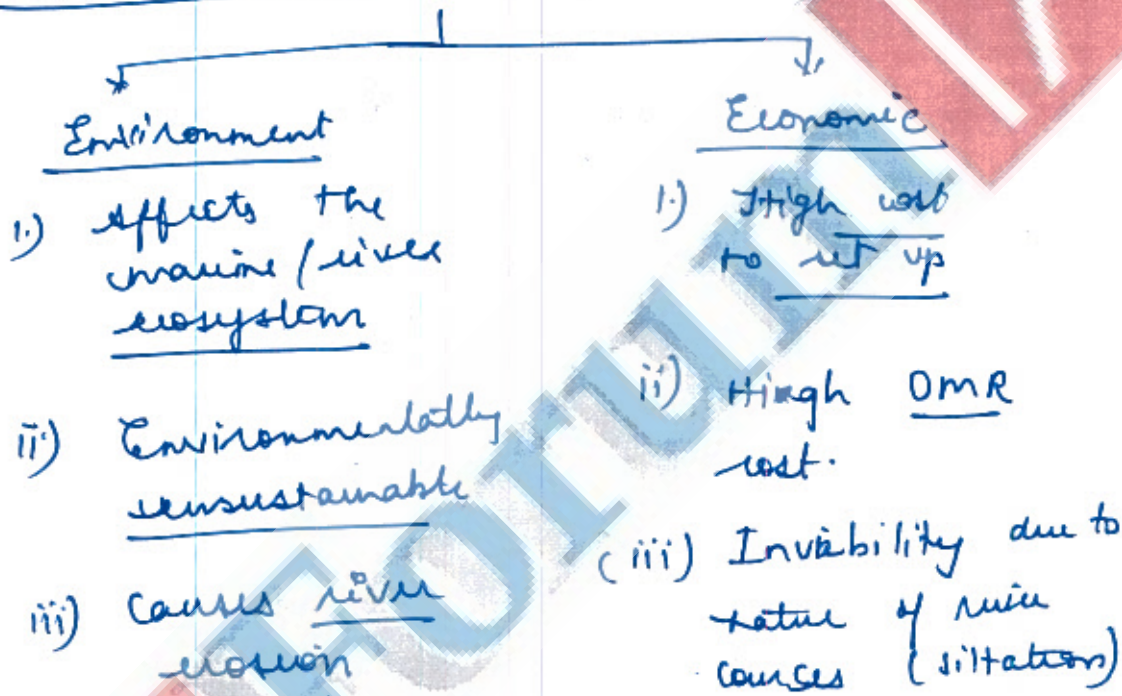 Environment
1.) Affects the
marine / river
ecosystem
ii) Environmentally
unsustainable
iii) Causes river
erosion
Economic
1.) High cost
to set up
ii) High OMR
cost.
(iii) Inviability due to
nature of river
courses (siltation)
Forum